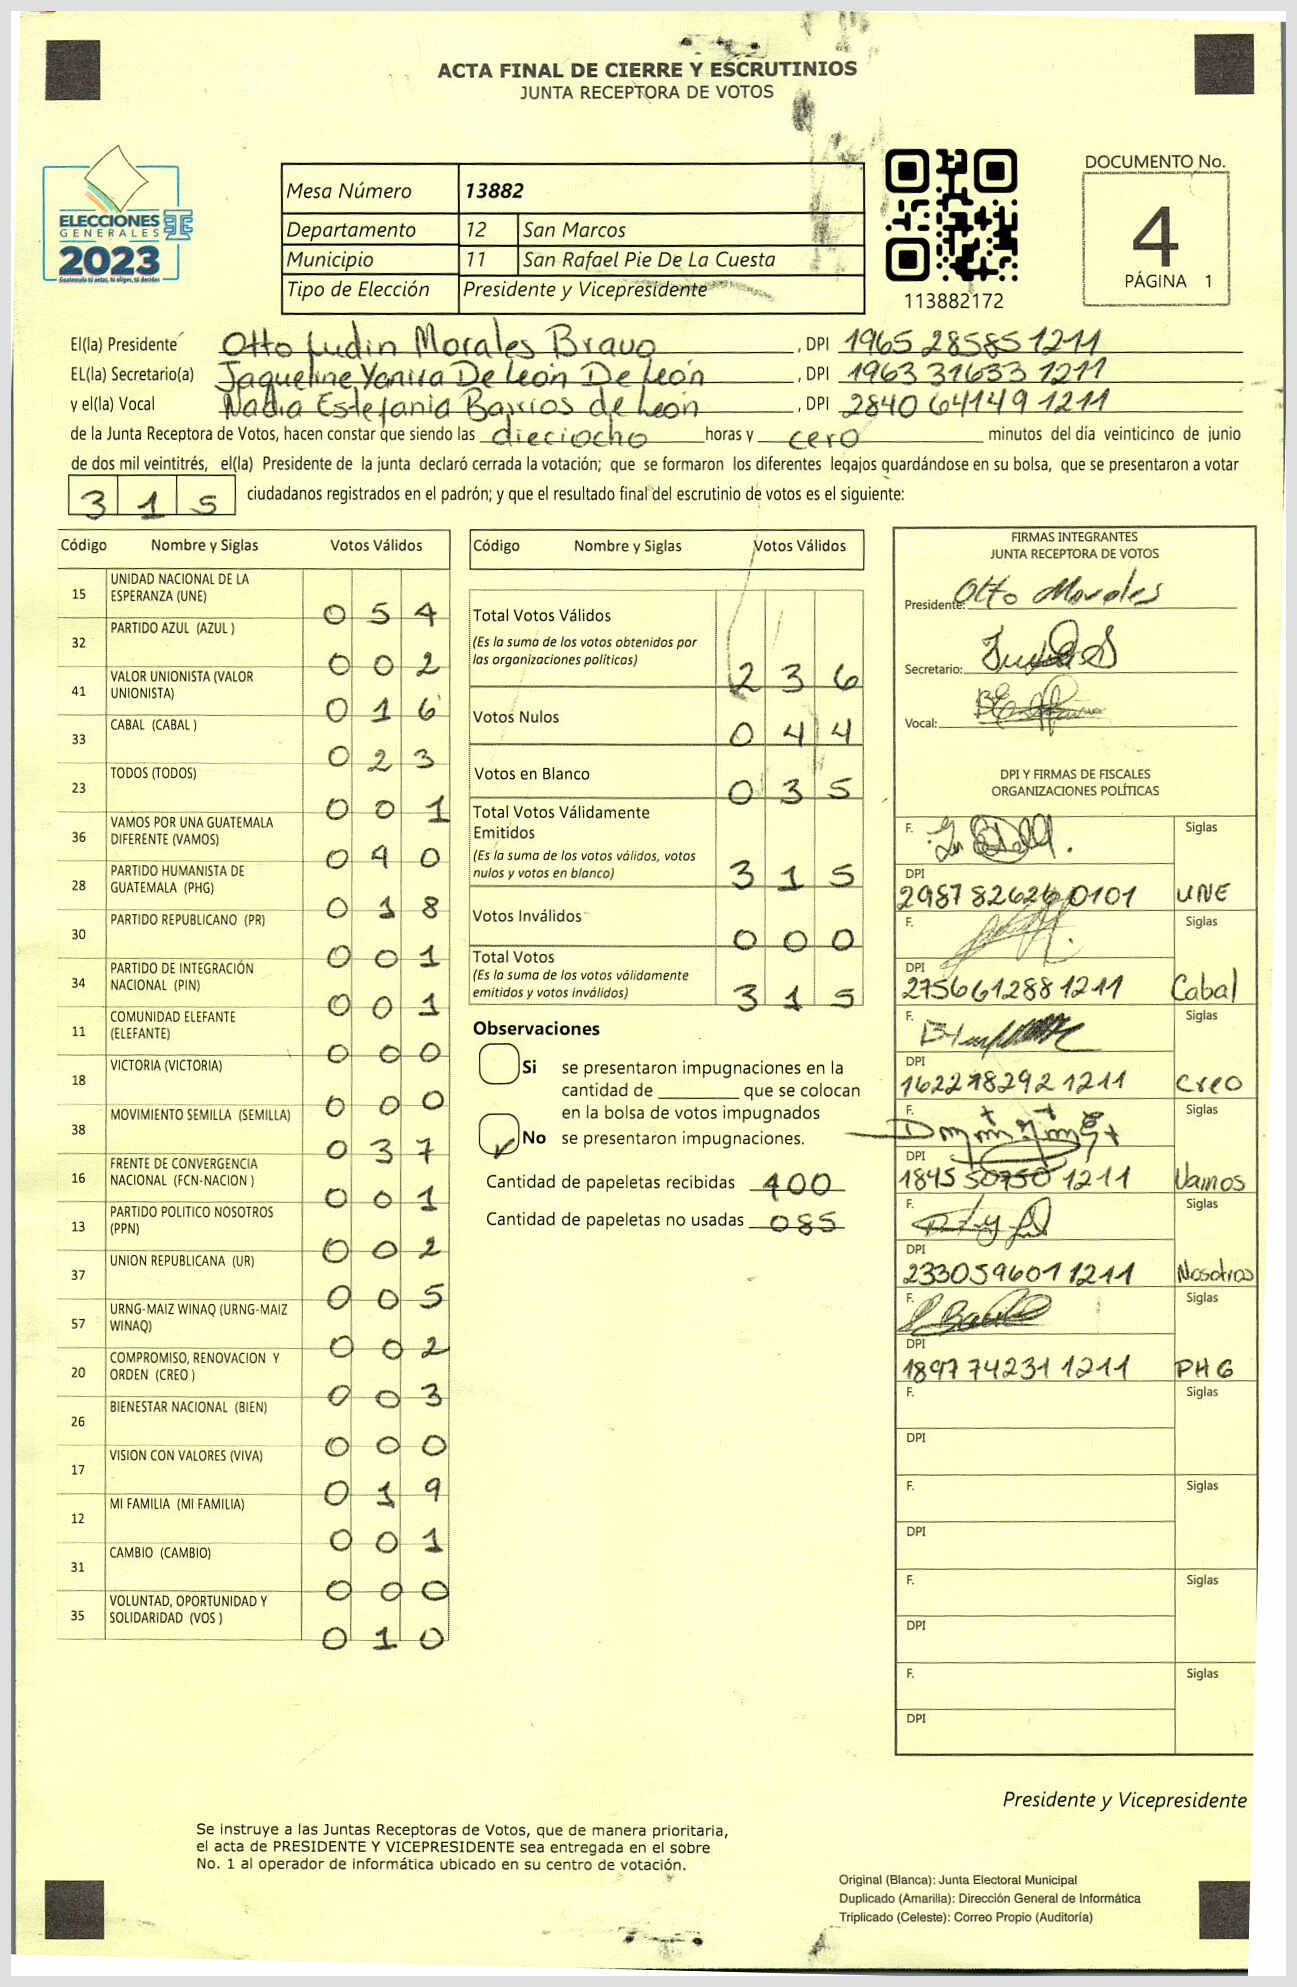 ACTA FINAL DE CIERRE Y ESCRUTINIOS
JUNTA RECEPTORA DE VOTOS
ELECCIONES
GENERALES
2023
Guatemala tú antes, tú eliges, tú decides
Mesa Número 13882
Departamento 12 San Marcos
Municipio 11 San Rafael Pie De La Cuesta
Tipo de Elección Presidente y Vicepresidente
113882172
DOCUMENTO No.
4
PÁGINA 1
El(la) Presidente Otto Ludin Morales Bravo , DPI 1965 28585 1211
EL(la) Secretario(a) Jaqueline Yanira De León De León , DPI 1963 31633 1211
y el(la) Vocal Nadia Estefania Barrios de León , DPI 2840 64149 1211
de la Junta Receptora de Votos, hacen constar que siendo las dieciocho horas y cero minutos del día veinticinco de junio
de dos mil veintitrés, el(la) Presidente de la junta declaró cerrada la votación; que se formaron los diferentes legajos guardándose en su bolsa, que se presentaron a votar
315 ciudadanos registrados en el padrón; y que el resultado final del escrutinio de votos es el siguiente:
Código Nombre y Siglas Votos Válidos
15 UNIDAD NACIONAL DE LA ESPERANZA (UNE) 054
32 PARTIDO AZUL (AZUL ) 002
41 VALOR UNIONISTA (VALOR UNIONISTA) 016
33 CABAL (CABAL ) 023
23 TODOS (TODOS) 001
36 VAMOS POR UNA GUATEMALA DIFERENTE (VAMOS) 040
28 PARTIDO HUMANISTA DE GUATEMALA (PHG) 018
30 PARTIDO REPUBLICANO (PR) 001
34 PARTIDO DE INTEGRACIÓN NACIONAL (PIN) 001
11 COMUNIDAD ELEFANTE (ELEFANTE) 000
18 VICTORIA (VICTORIA) 000
38 MOVIMIENTO SEMILLA (SEMILLA) 037
16 FRENTE DE CONVERGENCIA NACIONAL (FCN-NACION ) 001
13 PARTIDO POLITICO NOSOTROS (PPN) 002
37 UNION REPUBLICANA (UR) 005
57 URNG-MAIZ WINAQ (URNG-MAIZ WINAQ) 002
20 COMPROMISO, RENOVACION Y ORDEN (CREO ) 003
26 BIENESTAR NACIONAL (BIEN) 000
17 VISION CON VALORES (VIVA) 019
12 MI FAMILIA (MI FAMILIA) 001
31 CAMBIO (CAMBIO) 000
35 VOLUNTAD, OPORTUNIDAD Y SOLIDARIDAD (VOS ) 010
Código Nombre y Siglas Votos Válidos
Total Votos Válidos
(Es la suma de los votos obtenidos por
las organizaciones políticas) 236
Votos Nulos 044
Votos en Blanco 035
Total Votos Válidamente
Emitidos
(Es la suma de los votos válidos, votos
nulos y votos en blanco) 315
Votos Inválidos 000
Total Votos
(Es la suma de los votos válidamente
emitidos y votos inválidos) 315
Observaciones
Si se presentaron impugnaciones en la
cantidad de ________ que se colocan
en la bolsa de votos impugnados
No se presentaron impugnaciones.
Cantidad de papeletas recibidas 400
Cantidad de papeletas no usadas 085
FIRMAS INTEGRANTES
JUNTA RECEPTORA DE VOTOS
Presidente: Otto Morales
Secretario:
Vocal:
DPI Y FIRMAS DE FISCALES
ORGANIZACIONES POLÍTICAS
F. Siglas
DPI
2987 82626 0101 UNE
F. Siglas
DPI
2756612881211 Cabal
F. Siglas
DPI
1622182921211 Creo
F. Siglas
DPI
1845 50750 1211 Vamos
F. Siglas
DPI
2330596011211 Nosotros
F. Siglas
DPI
1897 74231 1211 PHG
F. Siglas
DPI
F. Siglas
DPI
F. Siglas
DPI
F. Siglas
DPI
Presidente y Vicepresidente
Se instruye a las Juntas Receptoras de Votos, que de manera prioritaria,
el acta de PRESIDENTE Y VICEPRESIDENTE sea entregada en el sobre
No. 1 al operador de informática ubicado en su centro de votación.
Original (Blanca): Junta Electoral Municipal
Duplicado (Amarilla): Dirección General de Informática
Triplicado (Celeste): Correo Propio (Auditoría)